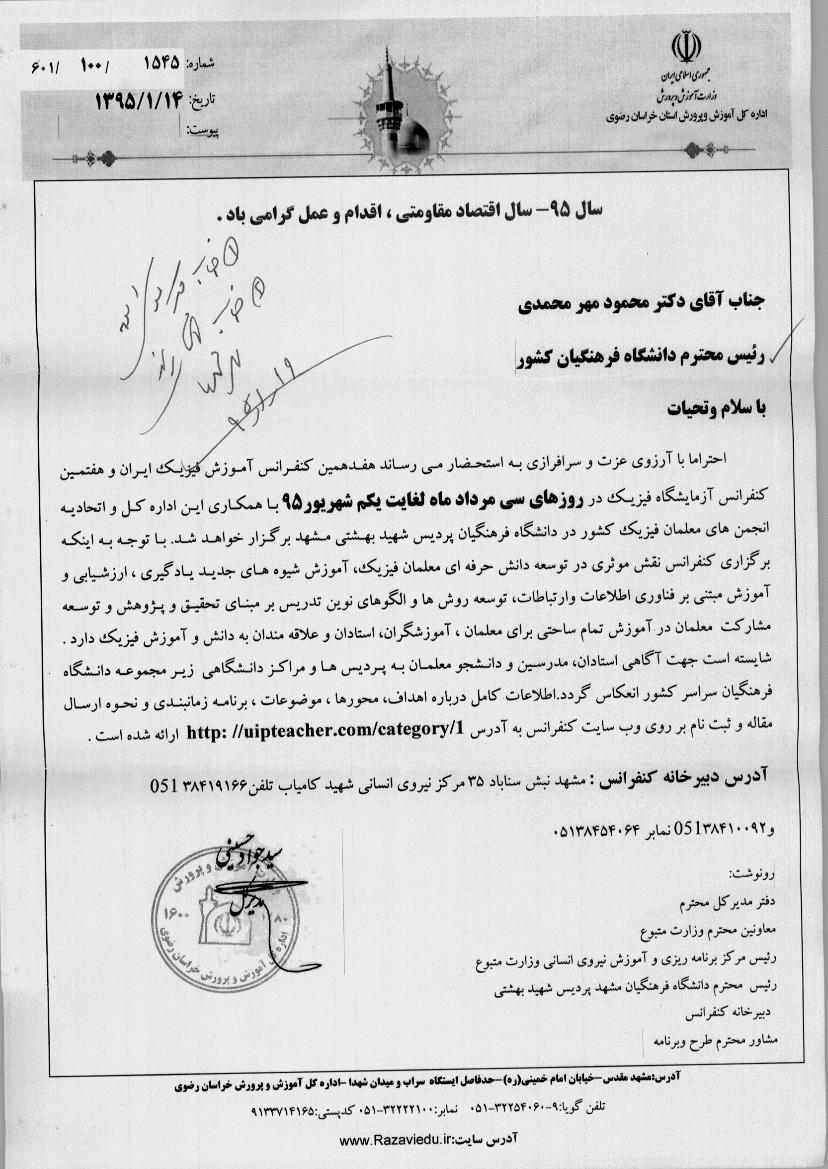 جمهوری اسلامی ایران
وزارت آموزش و پرورش
اداره کل آموزش وپرورش استان خراسان رضوی
شماره: ۱۵۴۵ / ۱۰۰ / ۶۰۱
تاریخ: ۱۳۹۵/۱/۱۴
پیوست:
سال ۹۵- سال اقتصاد مقاومتی ، اقدام و عمل گرامی باد .
جناب آقای دکتر محمود مهر محمدی
رئیس محترم دانشگاه فرهنگیان کشور
با سلام وتحیات
احتراما با آرزوی عزت و سرافرازی به استحضار می رساند هفدهمین کنفرانس آموزش فیزیک ایران و هفتمین
کنفرانس آزمایشگاه فیزیک در روزهای سی مرداد ماه لغایت یکم شهریور۹۵ با همکاری این اداره کل و اتحادیه
انجمن های معلمان فیزیک کشور در دانشگاه فرهنگیان پردیس شهید بهشتی مشهد برگزار خواهد شد. با توجه به اینکه
برگزاری کنفرانس نقش موثری در توسعه دانش حرفه ای معلمان فیزیک، آموزش شیوه های جدید یادگیری ، ارزشیابی و
آموزش مبتنی بر فناوری اطلاعات وارتباطات، توسعه روش ها و الگوهای نوین تدریس بر مبنای تحقیق و پژوهش و توسعه
مشارکت معلمان در آموزش تمام ساحتی برای معلمان ، آموزشگران، استادان و علاقه مندان به دانش و آموزش فیزیک دارد .
شایسته است جهت آگاهی استادان، مدرسین و دانشجو معلمان به پردیس ها و مراکز دانشگاهی زیر مجموعه دانشگاه
فرهنگیان سراسر کشور انعکاس گردد.اطلاعات کامل درباره اهداف، محورها ، موضوعات ، برنامه زمانبندی و نحوه ارسال
مقاله و ثبت نام بر روی وب سایت کنفرانس به آدرس http: //uipteacher.com/category/1 ارائه شده است .
آدرس دبیرخانه کنفرانس : مشهد نبش سناباد ۳۵ مرکز نیروی انسانی شهید کامیاب تلفن۳۸۴۱۹۱۶۶ 051
و۳۸۴۱۰۰۹۲051 نمابر ۰۵۱۳۸۴۵۴۰۶۴
سید جواد حسینی
مدیرکل
اداره کل آموزش و پرورش خراسان رضوی
رونوشت:
دفتر مدیرکل محترم
معاونین محترم وزارت متبوع
رئیس مرکز برنامه ریزی و آموزش نیروی انسانی وزارت متبوع
رئیس محترم دانشگاه فرهنگیان مشهد پردیس شهید بهشتی
دبیرخانه کنفرانس
مشاور محترم طرح وبرنامه
آدرس:مشهد مقدس-خیابان امام خمینی(ره)-حدفاصل ایستگاه سراب و میدان شهدا -اداره کل آموزش و پرورش خراسان رضوی
تلفن گویا:۹-۳۲۲۵۴۰۶۰-۰۵۱ نمابر:۳۲۲۲۲۱۰۰-۰۵۱ کدپستی:۹۱۳۳۷۱۴۱۶۵
آدرس سایت:www.Razaviedu.ir